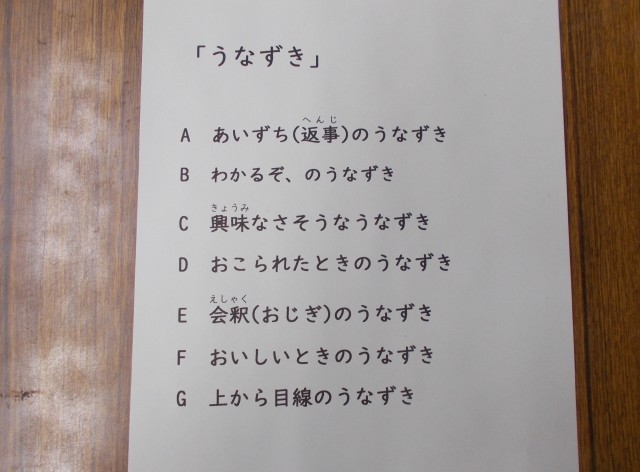 「うなずき」
A あいずち(返事)のうなずき
へんじ
B わかるぞ、のうなずき
C 興味なさそうなうなずき
きょうみ
D おこられたときのうなずき
E 会釈(おじぎ)のうなずき
えしゃく
F おいしいときのうなずき
G 上から目線のうなずき